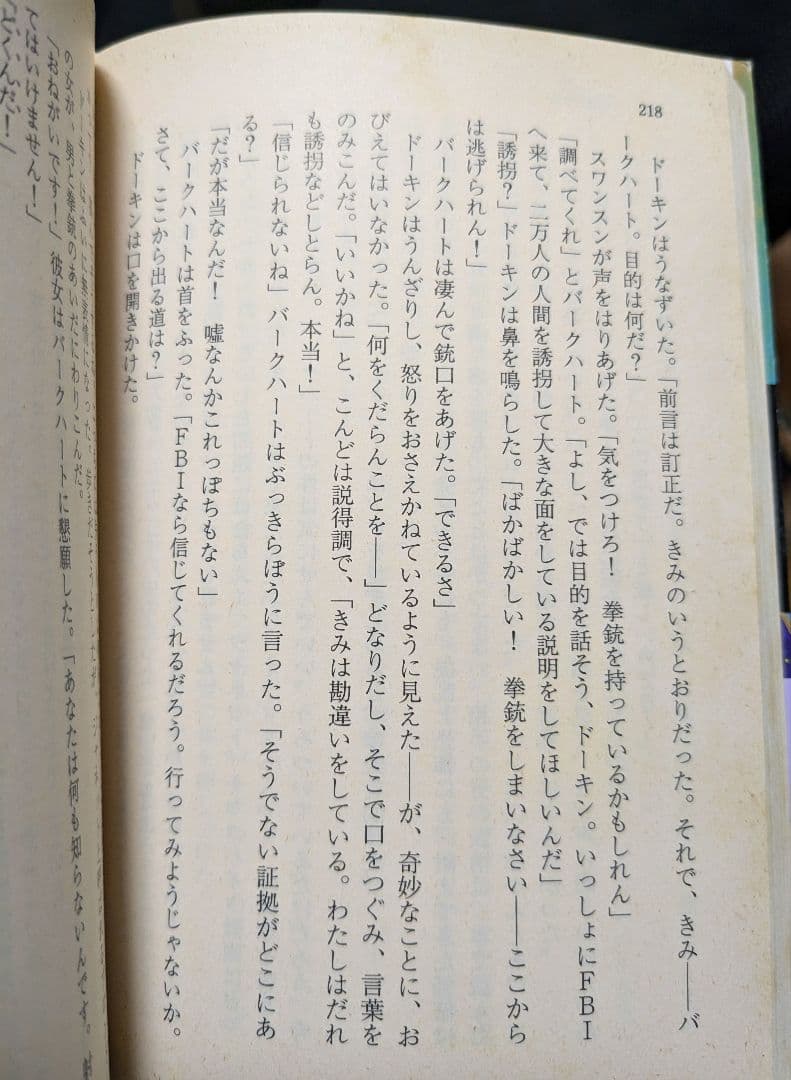 218
ドーキンはうなずいた。「前言は訂正だ。きみのいうとおりだった。それで、きみ――バ
ークハート。目的は何だ?」
スワンスンが声をはりあげた。「気をつけろ! 拳銃を持っているかもしれん」
「調べてくれ」とバークハート。「よし、では目的を話そう、ドーキン。いっしょにFBI
へ来て、二万人の人間を誘拐して大きな面をしている説明をしてほしいんだ」
「誘拐?」ドーキンは鼻を鳴らした。「ばかばかしい! 拳銃をしまいなさい――ここから
は逃げられん!」
バークハートは凄んで銃口をあげた。「できるさ」
ドーキンはうんざりし、怒りをおさえかねているように見えた――が、奇妙なことに、お
びえてはいなかった。「何をくだらんことを――」どなりだし、そこで口をつぐみ、言葉を
のみこんだ。「いいかね」と、こんどは説得調で、「きみは勘違いをしている。わたしはだれ
も誘拐などしとらん。本当!」
「信じられないね」バークハートはぶっきらぼうに言った。「そうでない証拠がどこにあ
る?」
「だが本当なんだ! 嘘なんかこれっぽちもない」
バークハートは首をふった。「FBIなら信じてくれるだろう。行ってみようじゃないか。
さて、ここから出る道は?」
ドーキンは口を開きかけた。
の女が、男と拳銃のあいだにわりこんだ。
「おねがいです!」彼女はバークハートに懇願した。「あなたは何も知らないんです。
てはいけません!」
どくんだ!」